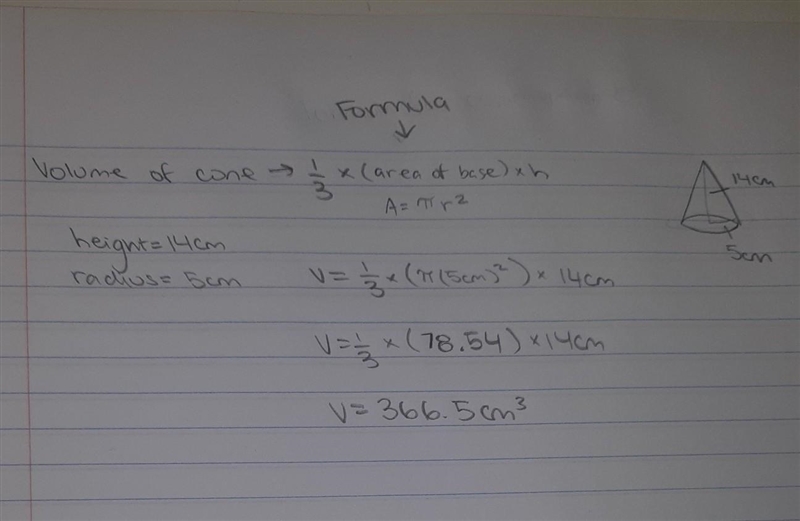 Formula
↓
Volume of cone → 1/3 × (area of base) × h
A = πr²
14cm
5cm
height = 14cm
radius = 5cm
V = 1/3 × (π(5cm)²) × 14cm
V = 1/3 × (78.54) × 14cm
V = 366.5cm³